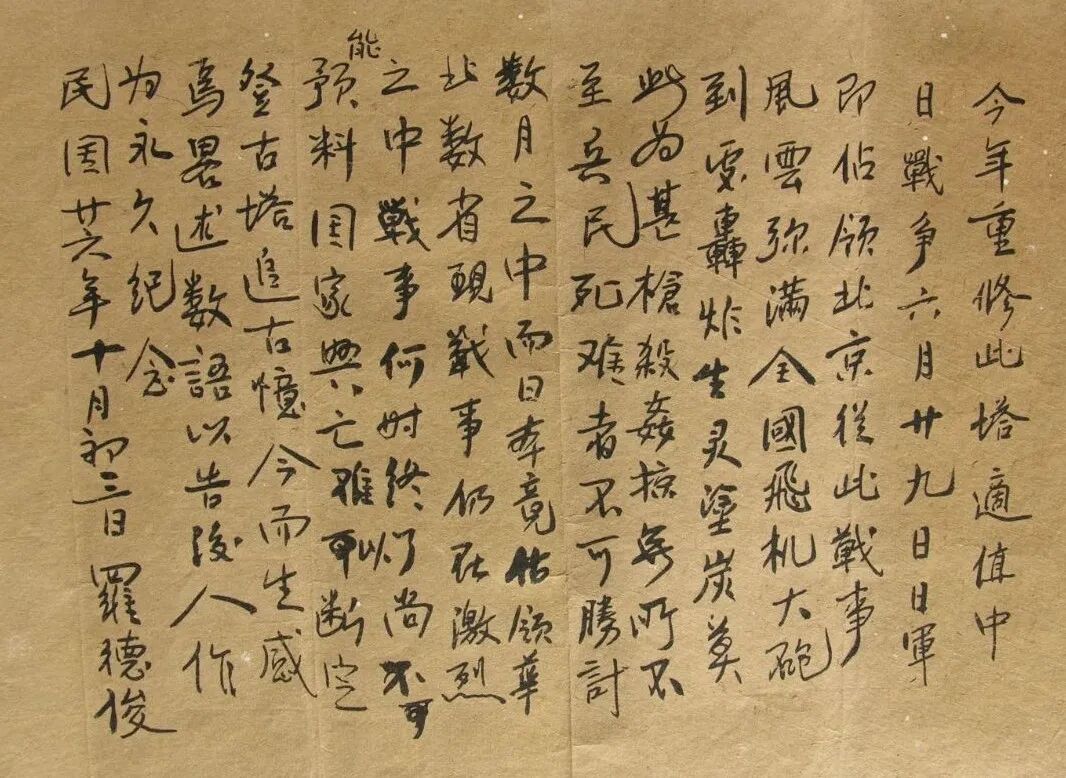 今年重修此塔適值中
日戰争六月廿九日日軍
即佔領北京從此戰事
風雲弥滿全國飛机大砲
到處轟炸生灵塗炭莫
此为甚槍殺姦掠無所不
至兵民死难者不可勝計
数月之中而日本竟佔領華
北数省現戰事仍在激烈
之中戦事何时终尚不可
能
預料国家興亡难断定
登古塔追古憶今而生感
焉畧述数語以告後人作
为永久紀念
民国廿六年十月初三日羅德俊